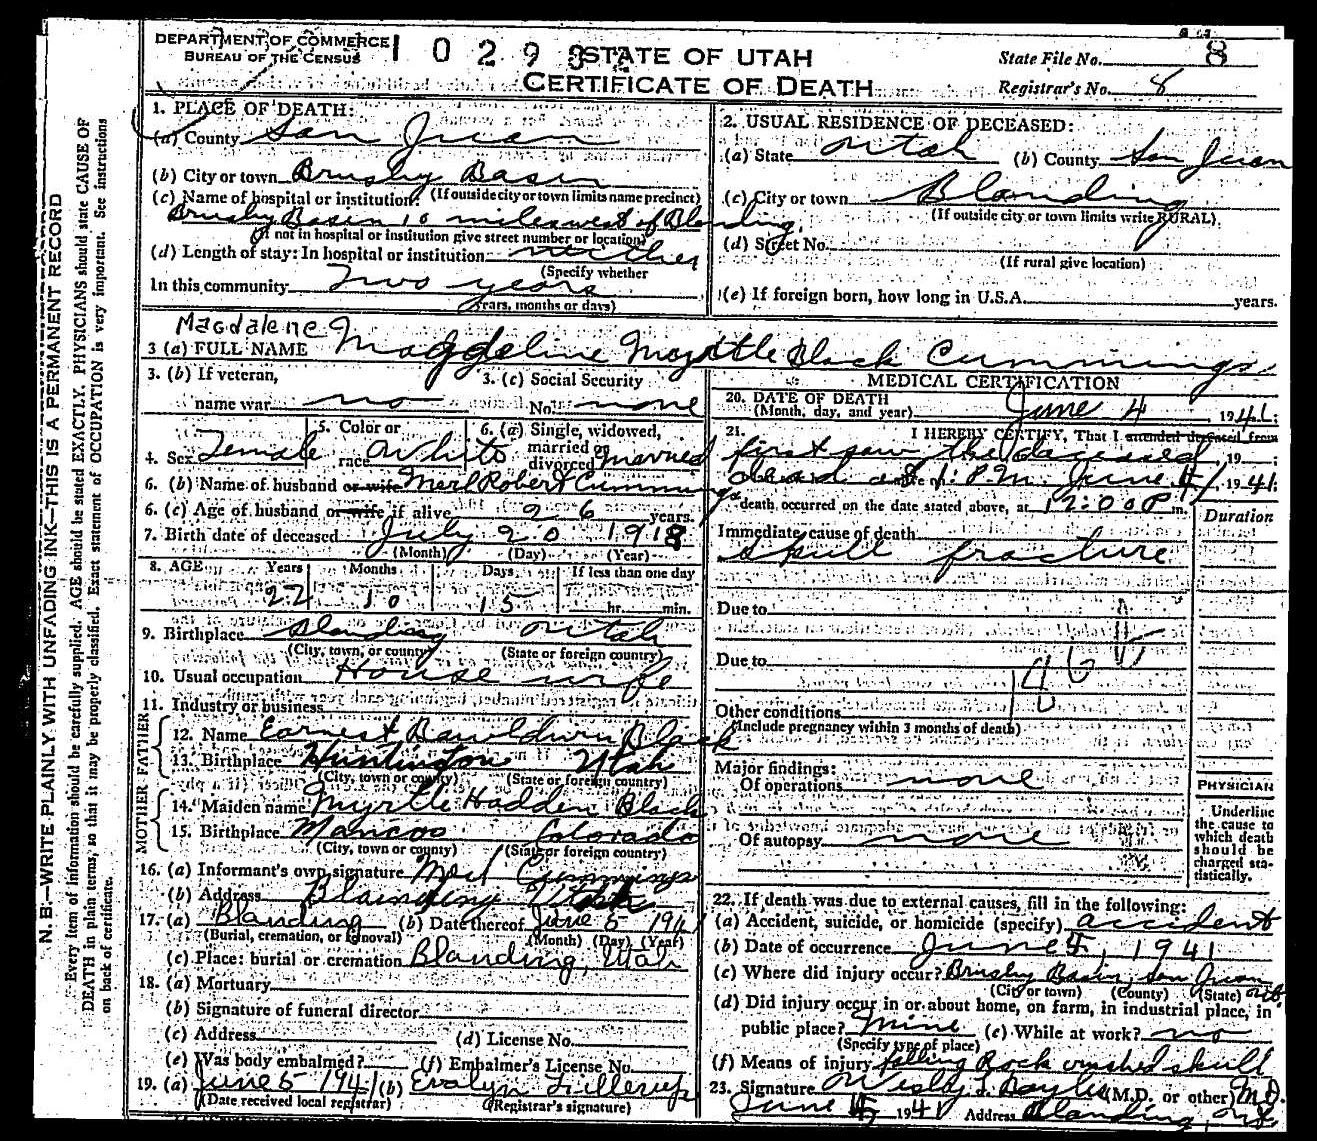 DEPARTMENT OF COMMERCE
BUREAU OF THE CENSUS
1 0 2 9
STATE OF UTAH
CERTIFICATE OF DEATH
State File No. 8
Registrar's No. 8
N. B.—WRITE PLAINLY WITH UNFADING INK—THIS IS A PERMANENT RECORD
Every item of information should be carefully supplied. AGE should be stated EXACTLY. PHYSICIANS should state CAUSE OF
DEATH in plain terms, so that it may be properly classified. Exact statement of OCCUPATION is very important. See instructions
on back of certificate.
1. PLACE OF DEATH:
(a) County San Juan
(b) City or town Brushy Basin
(If outside city or town limits name precinct)
(c) Name of hospital or institution:
Brushy Basin 10 miles west of Blanding
(If not in hospital or institution give street number or location)
(d) Length of stay: In hospital or institution neither
(Specify whether
In this community Two years
years, months or days)
2. USUAL RESIDENCE OF DECEASED:
(a) State Utah (b) County San Juan
(c) City or town Blanding
(If outside city or town limits write RURAL)
(d) Street No.
(If rural give location)
(e) If foreign born, how long in U.S.A. years.
Magdalene
3 (a) FULL NAME Magdeline Myrtle Black Cummings
3. (b) If veteran,
name war no
3. (c) Social Security
No. none
4. Sex Female
5. Color or
race White
6. (a) Single, widowed,
married or
divorced married
6. (b) Name of husband or wife Merl Robert Cummings
6. (c) Age of husband or wife if alive 26 years.
7. Birth date of deceased July 20 1918
(Month) (Day) (Year)
8. AGE Years Months Days If less than one day
22 10 15 hr. min.
9. Birthplace Blanding Utah
(City, town, or county) (State or foreign country)
10. Usual occupation House wife
11. Industry or business
FATHER
12. Name Earnest Black
13. Birthplace Huntington Utah
(City, town or county) (State or foreign country)
MOTHER
14. Maiden name Myrtle Hadden Black
15. Birthplace Mancos Colorado
(City, town or county) (State or foreign country)
16. (a) Informant's own signature Merl Cummings
(b) Address Blanding Utah
17. (a) Blanding (b) Date thereof June 5 1941
(Burial, cremation, or removal) (Month) (Day) (Year)
(c) Place: burial or cremation Blanding, Utah
18. (a) Mortuary
(b) Signature of funeral director
(c) Address (d) License No.
(e) Was body embalmed? (f) Embalmer's License No.
19. (a) June 5 1941 (b) Evalyn
(Date received local registrar) (Registrar's signature)
MEDICAL CERTIFICATION
20. DATE OF DEATH
(Month, day, and year) June 4 1941;
21. I HEREBY CERTIFY, That I attended deceased from
first saw the deceased, 19 ;
dead at 1: P.M. June 4, 1941;
death occurred on the date stated above, at 12:00 P m.
Duration
Immediate cause of death
Skull fracture
Due to
Due to
Other conditions
(Include pregnancy within 3 months of death)
Major findings:
Of operations none
Of autopsy none
PHYSICIAN
Underline
the cause to
which death
should be
charged sta-
tistically.
22. If death was due to external causes, fill in the following:
(a) Accident, suicide, or homicide (specify) accident
(b) Date of occurrence June 4, 1941
(c) Where did injury occur? Brushy Basin, San Juan Ut.
(City or town) (County) (State)
(d) Did injury occur in or about home, on farm, in industrial place, in
public place? Mine (e) While at work? no
(Specify type of place)
(f) Means of injury falling Rock crushed skull
23. Signature Wesley (M.D. or other) M.D.
June 1941 Address Blanding, Ut.